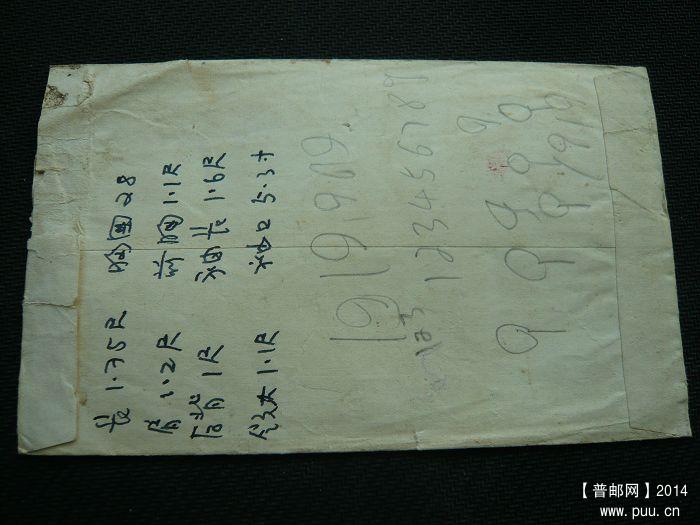 长 1.75尺 胸围 28
肩 1.2尺 前胸 1.1尺
后背 1尺 袖长 1.6尺
1.1尺 袖口 5.3寸
19191919
123 123456789
9 9 9 9 9
9 9919
【普邮网】2014
www.puu.cn